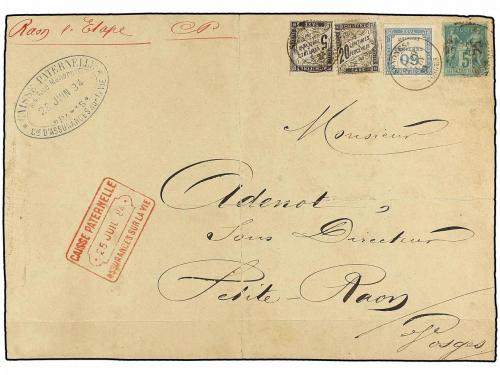 Raon l'Etape CP
CAISSE PATERNELLE
26 JUIN 94
Cie D'ASSURANCES SUR LA VIE
5
20
60
5
CAISSE PATERNELLE
25 JUIL 94
ASSURANCES SUR LA VIE
Monsieur
Adenot
Sous Directeur
Petite-Raon
Vosges